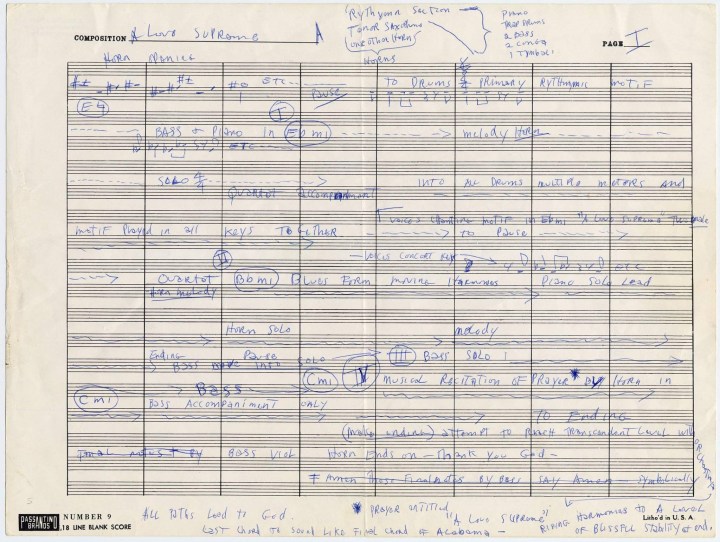 COMPOSITION A Love Supreme
Rythymn Section
Tenor Saxophone
one other horn
Piano
Trap Drums
2 Bass
2 Conga
1 Timbali
PAGE I
Horns
Horn
ETC
Pause
TO DRUMS PRIMARY RYTHYMIC MOTIF
E4
I
BASS + Piano in Ebmi
melody Horn
ETC
SOLO 4/4
Quartet accompaniment
INTO ALL DRUMS MULTIPLE METERS AND
VOICES CHANTING MOTIF IN Ebmi "A LOVE SUPREME"
motif Played in all KEYS TOGETHER.
TO Pause
VOICES CONCERT KEY
ETC
II
Quartet Bbmi Blues Form moving Harmonies Piano Solo Lead
Horn melody
Horn Solo
melody
Ending Pause
Bass move into solo
III Bass SOLO
Bass
Cmi
IV
MUSICAL RECITATION OF PRAYER * BY HORN in
Cmi
BASS ACCOMPANIMENT ONLY
TO Ending
(make ending) attempt TO REACH Transcendent Level with
ORCHESTRA
Final notes by Bass Viol
Horn Ends on - Thank You God -
Amen These Final notes By Bass SAY Amen - Symbolically
PASSANTINO BRANDS
NUMBER 9
18 LINE BLANK SCORE
Litho'd in U.S.A.
All Paths Lead to God.
* PRAYER ENTITLED
"A LOVE SUPREME"
Last Chord to Sound Like Final Chord of Alabama -
RISING HARMONIES TO A LEVEL
OF BLISSFUL STABILITY at end.